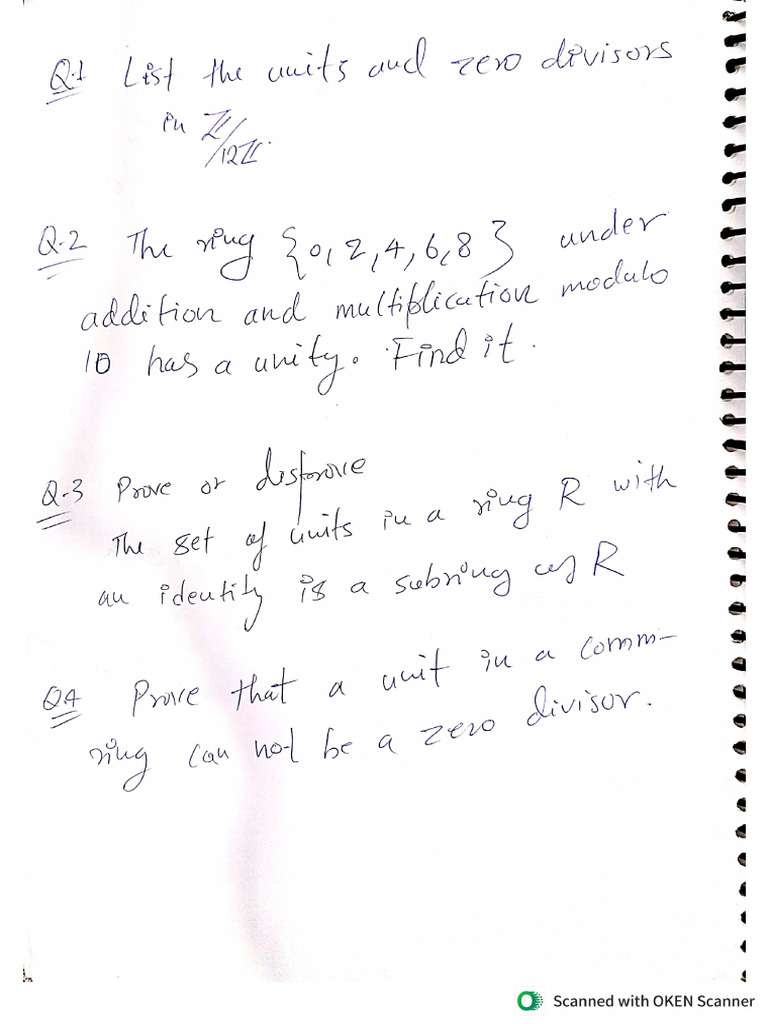 Q.1 List the units and zero divisors
in ℤ/12ℤ.
Q.2 The ring {0, 2, 4, 6, 8} under
addition and multiplication modulo
10 has a unity. Find it.
Q.3 Prove or disprove
The set of units in a ring R with
an identity is a subring of R
Q4 Prove that a unit in a comm-
ring can not be a zero divisor.
Scanned with OKEN Scanner